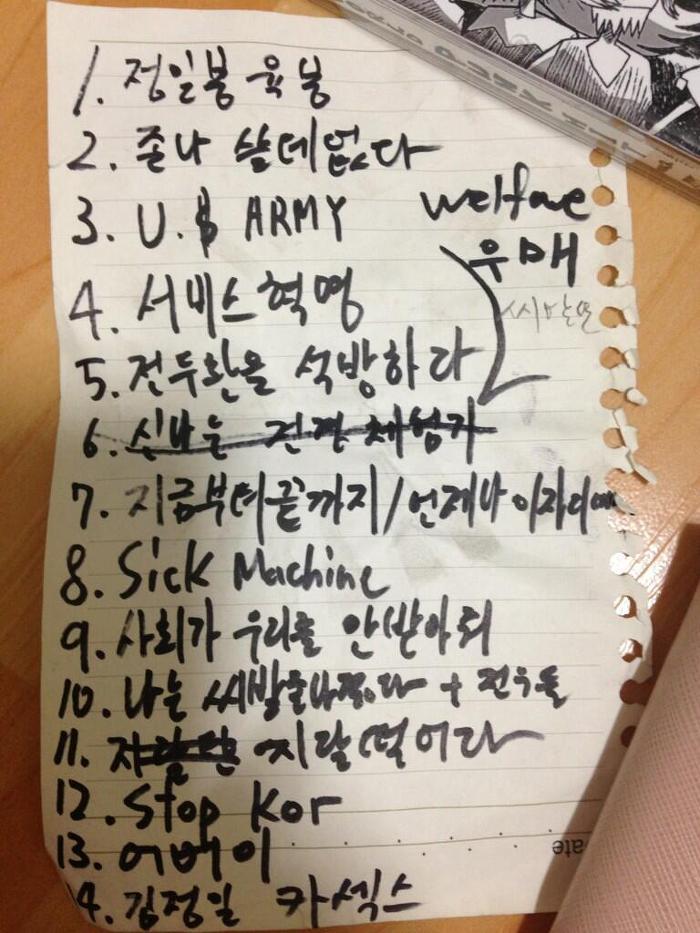 1. 정일봉 육봉
2. 존나 쓸데없다
3. U.$ ARMY
welfare
우매
4. 서비스혁명
5. 전두환을 석방하라
6. 신나는 전경 체험기
7. 지금부터끝까지/언제나 이자리에
8. Sick Machine
9. 사회가 우리를 안받아줘
10. 나는 씨발 + 전우들
11. 지랄떨어라
12. Stop Kor
13. 어버이
14. 김정일 카섹스